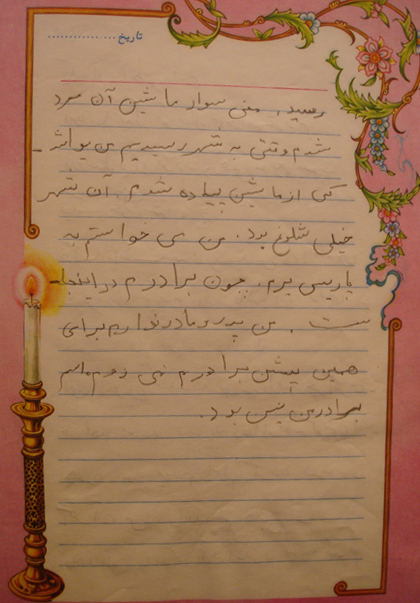 تاریخ ................
رسید، منی سوار ماشین آن مرد
شدم وقتی به شهر رسیدیم یواش
کی از ماشین پیاده شدم. آن شهر
خیلی شلوغ بود. من می خواستم به
پاریس برم. چون برادرم در اینجا
ست. من پدر و مادر ندارم برای
همین پیش برادرم می روم. اسم
برادرمن بود.